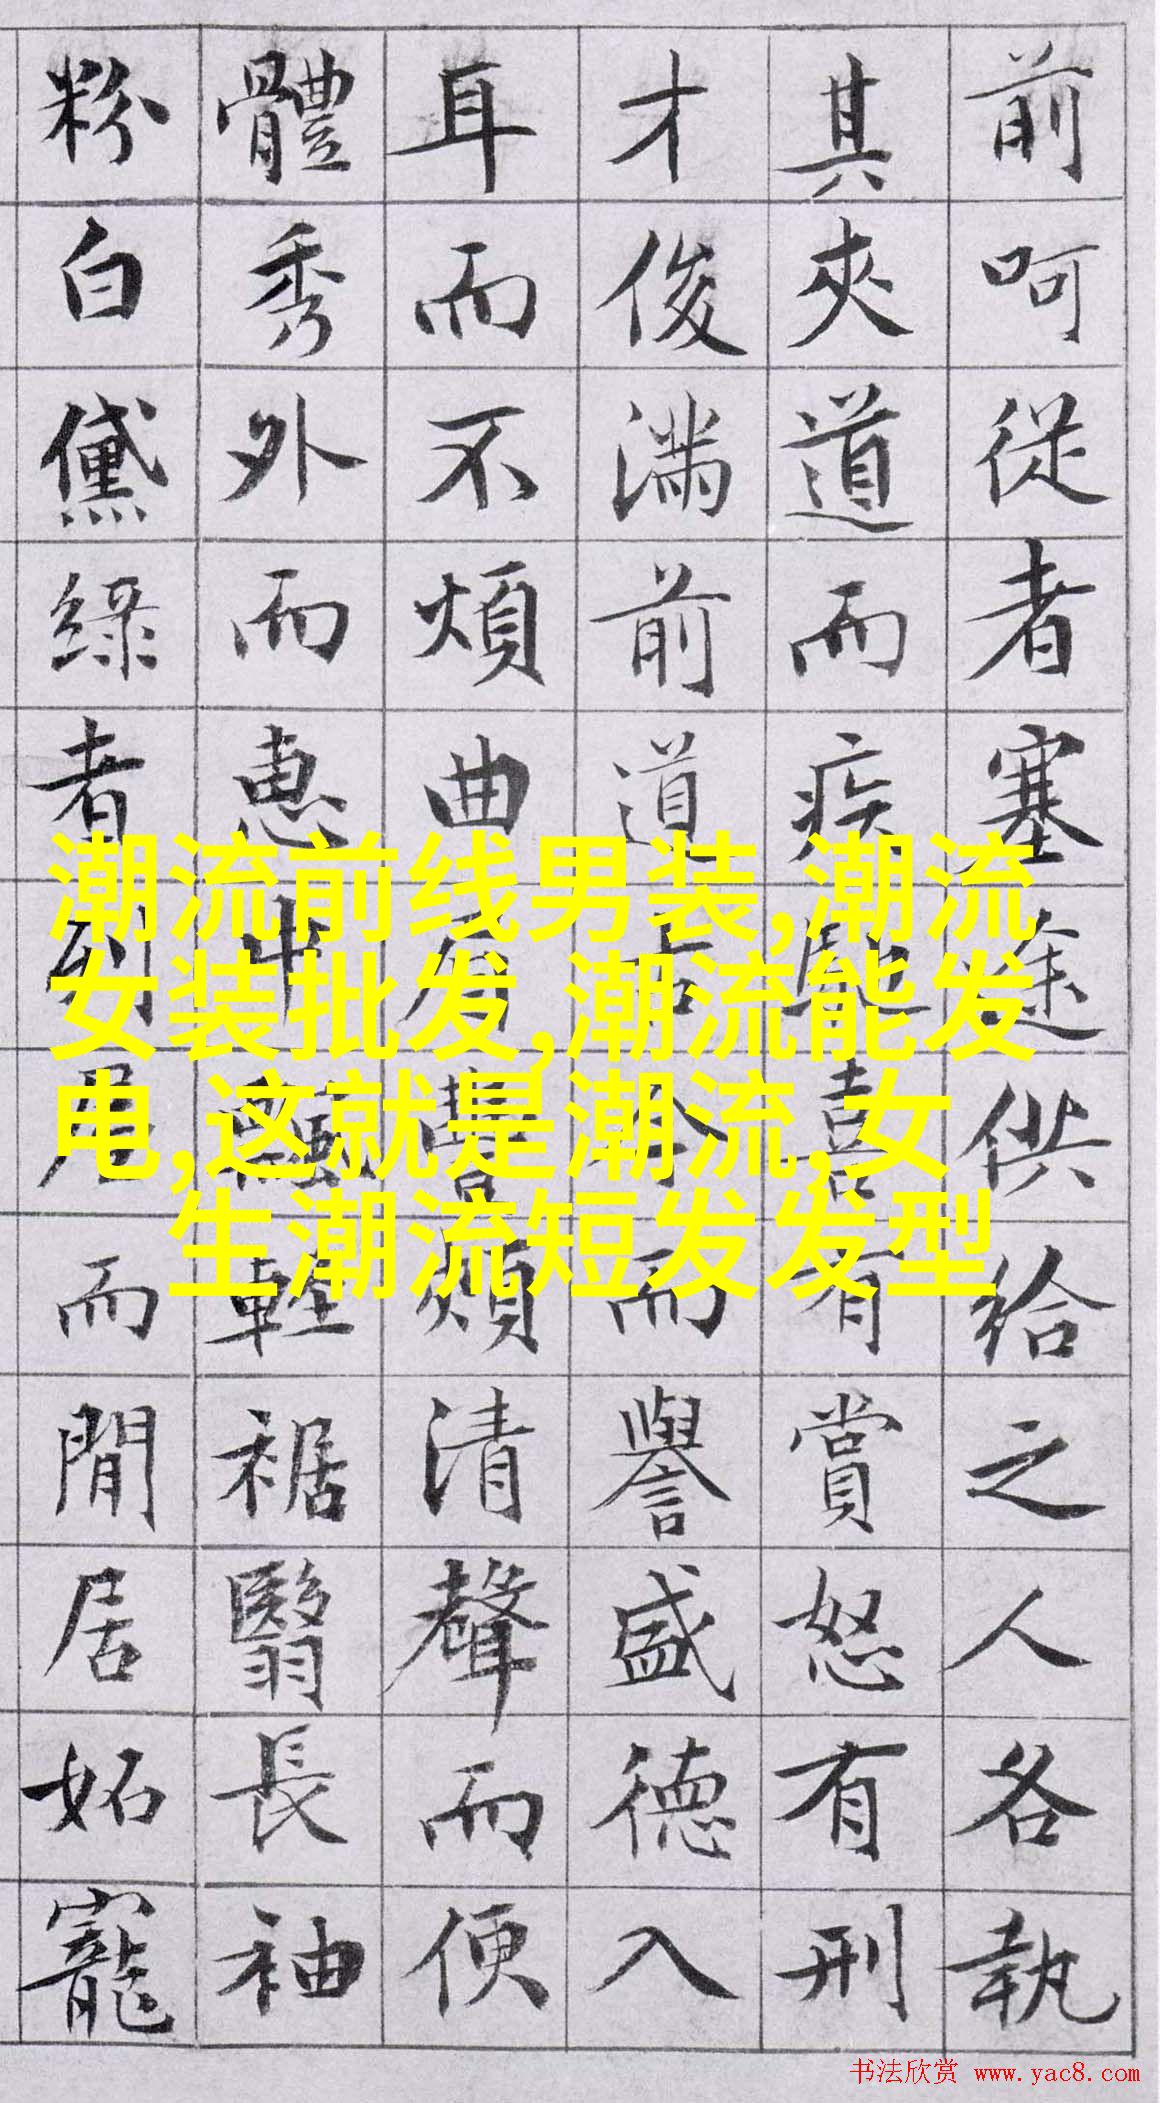 前呵從者塞途供給之人各執
其夾道而疾馳喜有賞怒有刑
才俊滿前道古今而譽盛德入
耳而不煩曲眉豐頰清聲而便
體秀外而惠中飄輕裾翳長袖
粉白黛綠者列屋而閒居妬寵
潮流前线男装,潮流
女装批发,潮流能发
电,这就是潮流,女
生潮流短发发型
书法欣赏 www.yac8.com